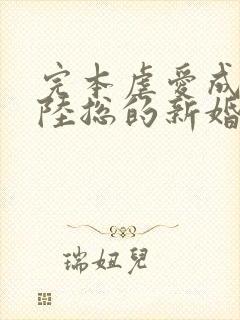 完本虐愛成
陸総的新婚
瑞妞兒